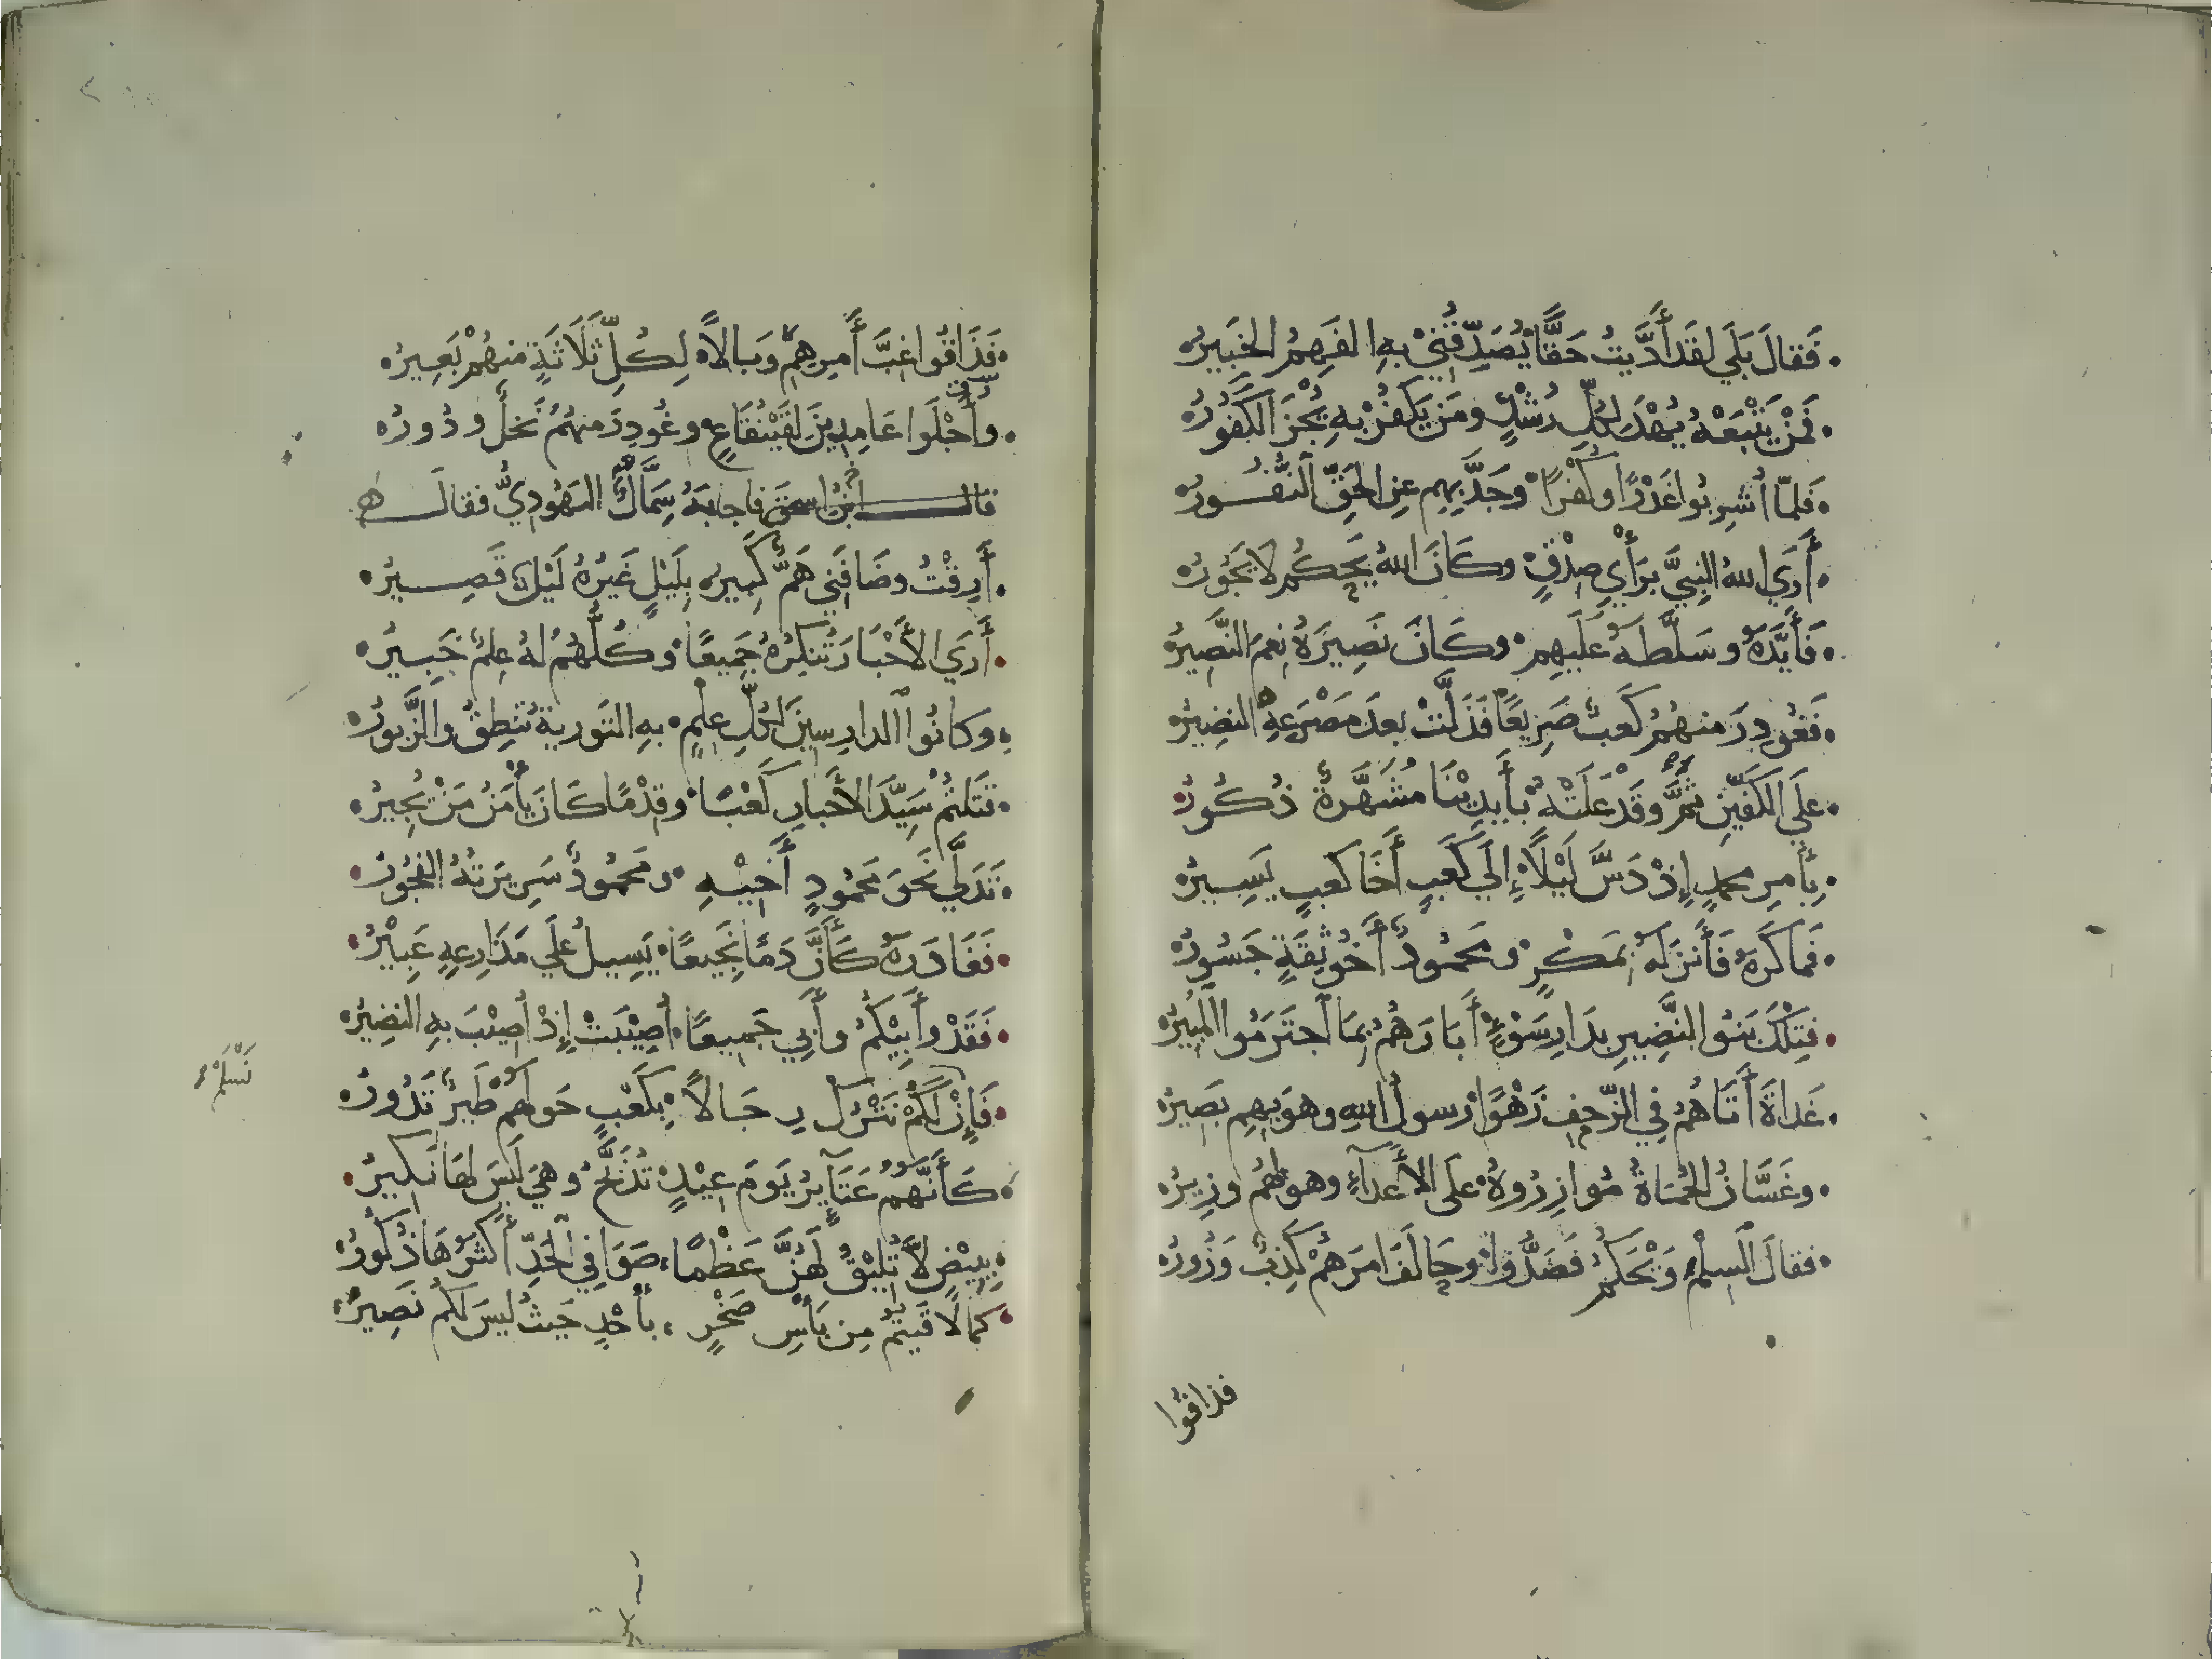 فَقَالَ بَلَي لقَد أَدَّيتُ حَقًّا يُصَدِّقُنِي بِهِ الفَهِمُ الخَبِيرُ
فَمَنْ يَتْبَعْهُ يُهْدَ لِكُلِّ رُشْدٍ ومَن يَكفُرْ بِهِ يُجْزَ الكَفُورُ
فَلمّا أُشرِبُوا غَدْرًا وكُفْرًا وجَدَّ بِهِم عنِ الحَقِّ النُّفُورُ
أَرَي اللهُ النبِيَّ برَأْيِ صِدْقٍ وكَانَ اللهُ يَحكُم لَا يَجُورُ
فَأَيَّدَهُ وسَلَّطَهُ عَلَيهِم وكَانَ نَصِيرَهُ نِعمَ النَّصِيرُ
فَغُودِرَ منهُمُ كَعبٌ صَرِيعًا فَذَلَّتْ بعدَ مَصْرَعِهِ النضِيرُ
عَلَي الكَفَّينِ ثَمَّ وقَدْ عَلَتْهُ بأَيدِيْنَا مُشَهَّرَةٌ ذُكُورُ
بِأَمرِ محمدٍ إِذْ دَسَّ لَيْلًا إِلَي كَعبٍ أَخَا كعبٍ يَسِيرُ
فَمَاكَرَهُ فَأَنزَلَهُ بمَكْرٍ ومَحمُودٌ أَخُو ثِقَةٍ جَسُورُ
فتِلكَ بَنُو النَّضِيرِ بدَارِ سَوْءٍ أَبَارَهُمُ بِمَا اجتَرَمُوا المُبِيرُ
غَدَاةَ أَتَاهُمُ فِي الزَّحفِ رَهْوًا رسولُ اللهِ وهوَ بِهِم بَصِيرُ
وغَسَّانُ الحُمَاةُ مُوازِرُوهُ علَى الأَعدَآءِ وهو لهُم وزِيرُ
فقالَ السِلْمُ وَيْحَكُمُ فَصَدُّوا وحَالَفَ امرَهُمْ كَذِبٌ وَزُورُ
فذاقُوا
فَذَاقُوا غِبَّ أَمرِهِمُ وَبَالًا لِكُلِّ ثَلَاثَةٍ منهُمْ بَعِيرُ
وأُجْلَوا عَامِدِينَ لقَيْنُقَاعٍ وغُودِرَ منهُمُ نَخلٌ ودُورُ
قال ابنُ اسحق فاجابَهُ سِمَّاكٌ اليَهُودِيُّ فقالَ
أَرِقْتُ وضَافَنِي هَمٌّ كَبِيرُ بِلَيْلٍ غَيرُهُ لَيْلٌ قَصِيرُ
أَرَي الأَحْبَارَ تُنكِرُهُ جَمِيعًا وكُلُّهُمُ لهُ عِلمٌ خَبِيرُ
وكَانُوا الدارِسِينَ لكُلِّ عِلمٍ بهِ التَورية تَنطِقُ والزَّبورُ
قَتَلتُمْ سَيِّدَ الأَحبارِ كَعْبًا وقِدْمًا كَانَ يأْمَنُ مَنْ يُجِيرُ
تَدَلَّي نَحَوَ مَحمُودٍ أَخِيْهِ ومَحمُودٌ سَرِيرَتُهُ الفجُورُ
فغَادَرَهُ كَأَنَّ دَمًا نَجِيعًا يَسِيلُ علَي مَدَارِعِهِ عَبِيْرُ
فَقَدْ وأَبِيْكُمُ وأَبِي جَمِيعًا أُصِيْبَتْ إِذْ أُصِيْبَ بهِ النضِيرُ
نَسْلَمْ
فَإِنْ لَكُمْ نَتْرُكْ رِجَالًا بِكَعْبٍ حَولَهُم طَيرٌ تَدُورُ
كَأَنَّهُمُ عَتَآيِرُ يَومَ عِيْدٍ تُذَبَّحُ وهيَ لَيسَ لهَا نَكِيرُ
بِبِيْضٍ لَا تُلِيْقُ لَهُنَّ عَظْمًا صَوَافِي الحَدِّ أَكثَرُهَا ذُكُورُ
كما لَاقَيتُمُ مِن بَأْسِ صَخْرٍ بأُحْدٍ حَيثُ ليسَ لكُم نَصِيرُ